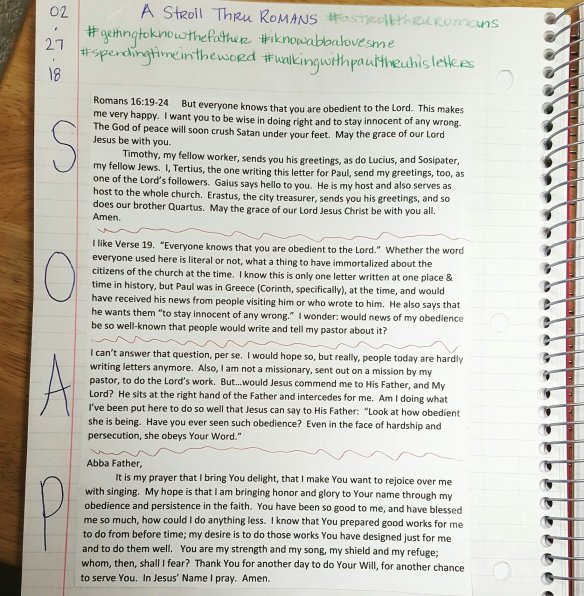 02
27
18
A STROLL THRU ROMANS #astrollthruromans
#gettingtoknowthefather #iknowabbalovesme
#spendingtimeintheword #walkingwithpaulthruhisletters
S
Romans 16:19-24 But everyone knows that you are obedient to the Lord. This makes
me very happy. I want you to be wise in doing right and to stay innocent of any wrong.
The God of peace will soon crush Satan under your feet. May the grace of our Lord
Jesus be with you.
Timothy, my fellow worker, sends you his greetings, as do Lucius, and Sosipater,
my fellow Jews. I, Tertius, the one writing this letter for Paul, send my greetings, too, as
one of the Lord's followers. Gaius says hello to you. He is my host and also serves as
host to the whole church. Erastus, the city treasurer, sends you his greetings, and so
does our brother Quartus. May the grace of our Lord Jesus Christ be with you all.
Amen.
O
I like Verse 19. "Everyone knows that you are obedient to the Lord." Whether the word
everyone used here is literal or not, what a thing to have immortalized about the
citizens of the church at the time. I know this is only one letter written at one place &
time in history, but Paul was in Greece (Corinth, specifically), at the time, and would
have received his news from people visiting him or who wrote to him. He also says that
he wants them "to stay innocent of any wrong." I wonder: would news of my obedience
be so well-known that people would write and tell my pastor about it?
A
I can't answer that question, per se. I would hope so, but really, people today are hardly
writing letters anymore. Also, I am not a missionary, sent out on a mission by my
pastor, to do the Lord's work. But...would Jesus commend me to His Father, and My
Lord? He sits at the right hand of the Father and intercedes for me. Am I doing what
I've been put here to do so well that Jesus can say to His Father: "Look at how obedient
she is being. Have you ever seen such obedience? Even in the face of hardship and
persecution, she obeys Your Word."
P
Abba Father,
It is my prayer that I bring You delight, that I make You want to rejoice over me
with singing. My hope is that I am bringing honor and glory to Your name through my
obedience and persistence in the faith. You have been so good to me, and have blessed
me so much, how could I do anything less. I know that You prepared good works for me
to do from before time; my desire is to do those works You have designed just for me
and to do them well. You are my strength and my song, my shield and my refuge;
whom, then, shall I fear? Thank You for another day to do Your Will, for another chance
to serve You. In Jesus' Name I pray. Amen.